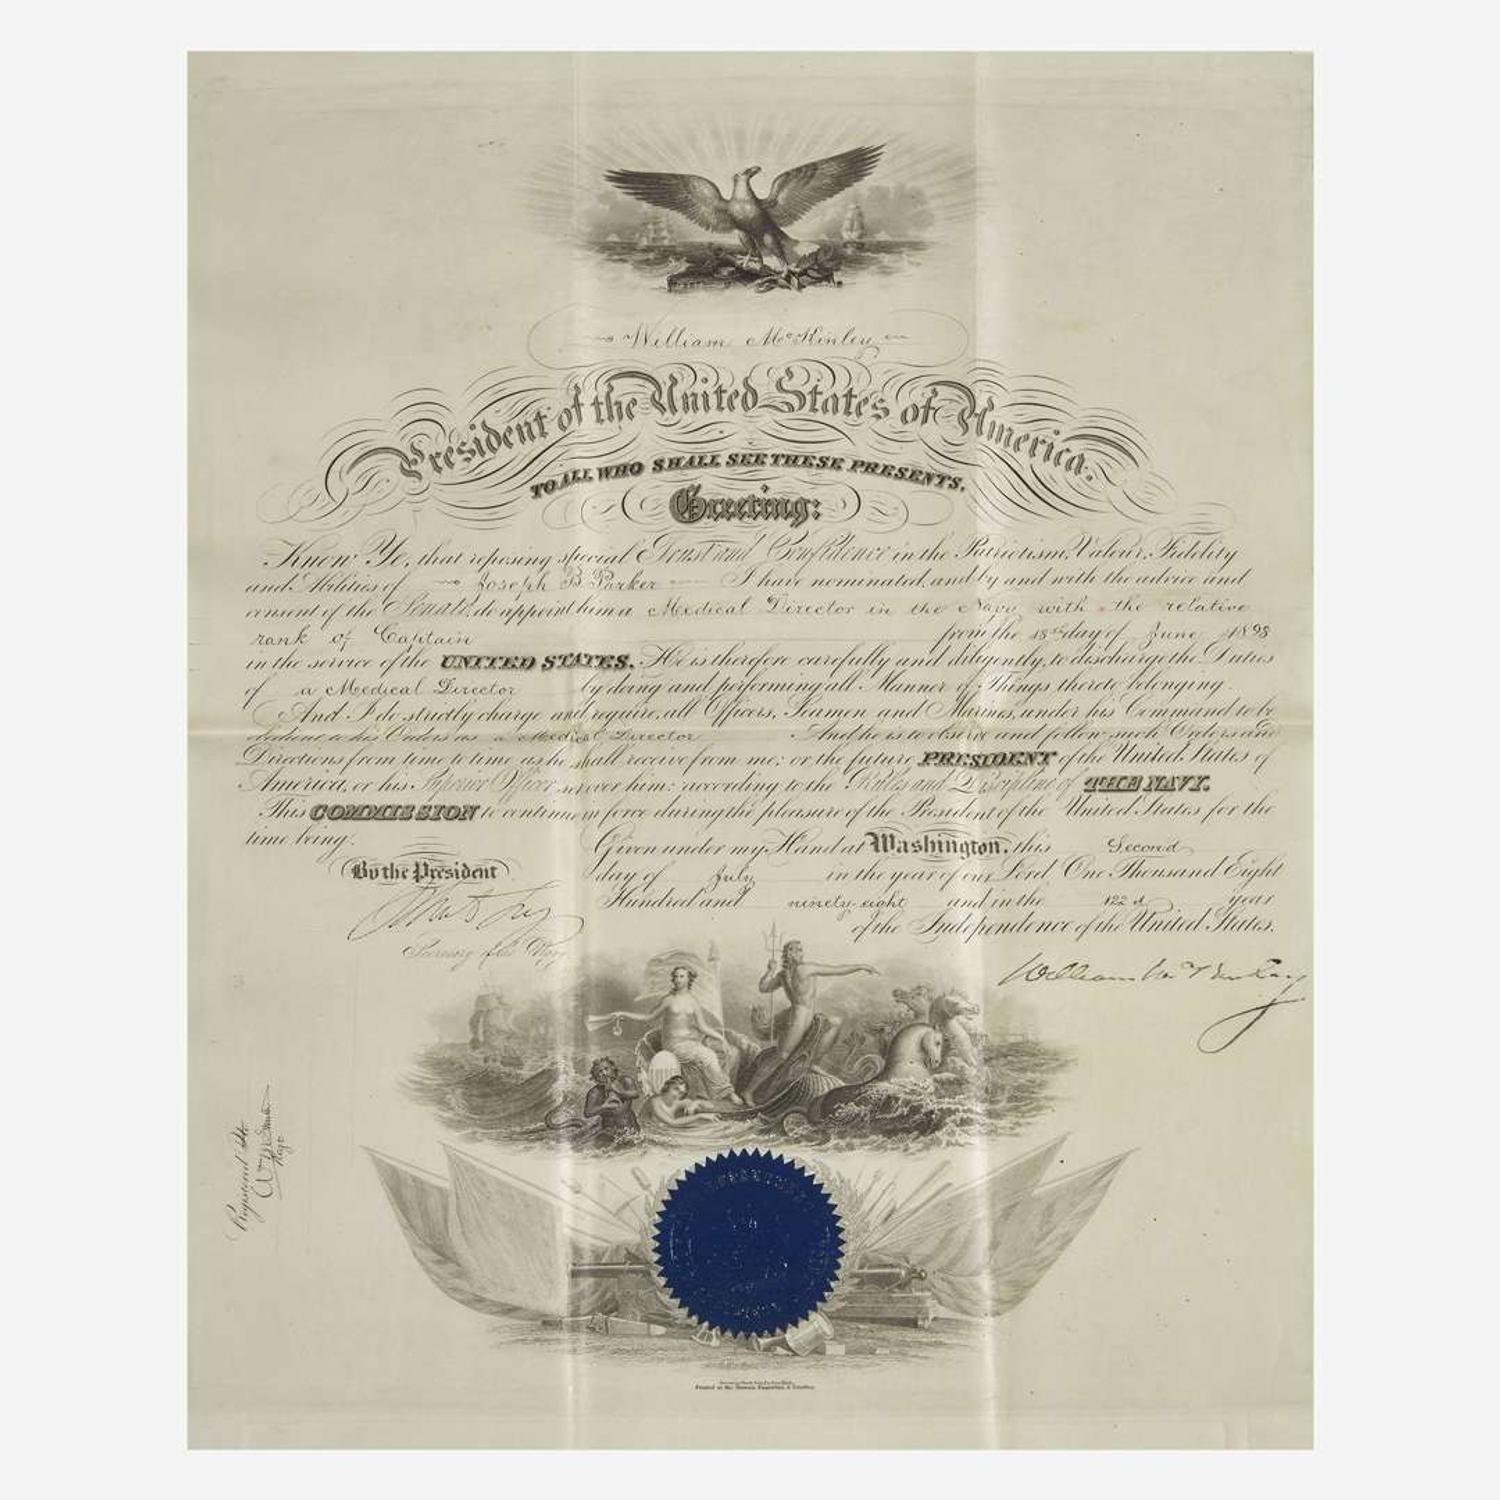 William McKinley
President of the United States of America.
TO ALL WHO SHALL SEE THESE PRESENTS,
Greeting:
Know Ye, that reposing special Trust and Confidence in the Patriotism, Valour, Fidelity
and Abilities of Joseph B. Parker I have nominated, and by and with the advice and
consent of the Senate, do appoint him a Medical Director in the Navy, with the relative
rank of Captain from the 18th day of June 1898
in the service of the UNITED STATES. He is therefore carefully and diligently, to discharge the Duties
of a Medical Director by doing and performing all Manner of Things thereto belonging.
And I do strictly charge and require, all Officers, Seamen and Marines, under his Command to be
obedient to his Orders as a Medical Director And he is to observe and follow such Orders and
Directions from time to time as he shall receive from me; or the future PRESIDENT of the United States of
America, or his Superior Officer set over him; according to the Rules and Discipline of THE NAVY.
This COMMISSION to continue in force during the pleasure of the President of the United States for the
time being.
Given under my Hand at Washington, this Second
By the President
day of July in the year of our Lord, One Thousand Eight
Hundred and ninety-eight and in the 122d year
of the Independence of the United States.
Secretary of the Navy
William McKinley
Registered